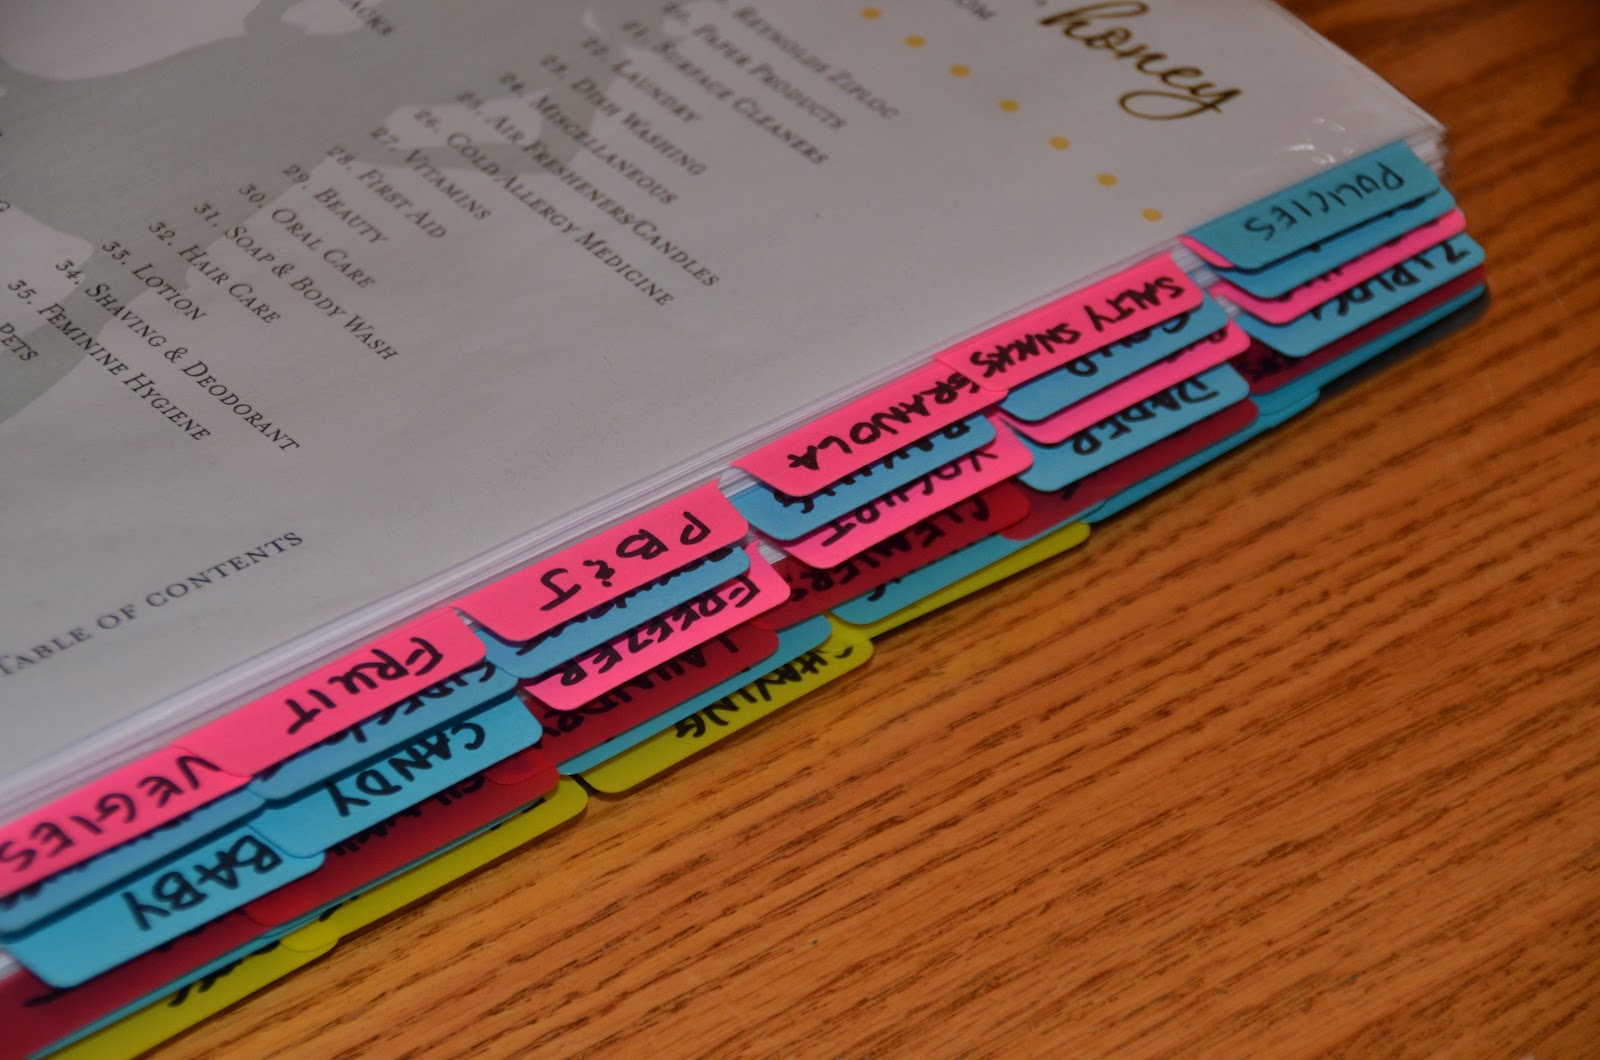 honey
TABLE OF CONTENTS
REYNOLDS ZIPLOC
PAPER PRODUCTS
21. SURFACE CLEANERS
22. LAUNDRY
23. DISH WASHING
24. MISCELLANEOUS
25. AIR FRESHENERS/CANDLES
26. COLD/ALLERGY MEDICINE
27. VITAMINS
28. FIRST AID
29. BEAUTY
30. ORAL CARE
31. SOAP & BODY WASH
32. HAIR CARE
33. LOTION
34. SHAVING & DEODORANT
35. FEMININE HYGIENE
PETS
POLICIES
ZIPLOC
SALTY SNACKS
COLD
PAPER
GRANOLA
YOGURT
CLEANERS
PB&J
FREEZER
LAUNDRY
SHAVING
FRUIT
CANDY
VEGIES
BABY